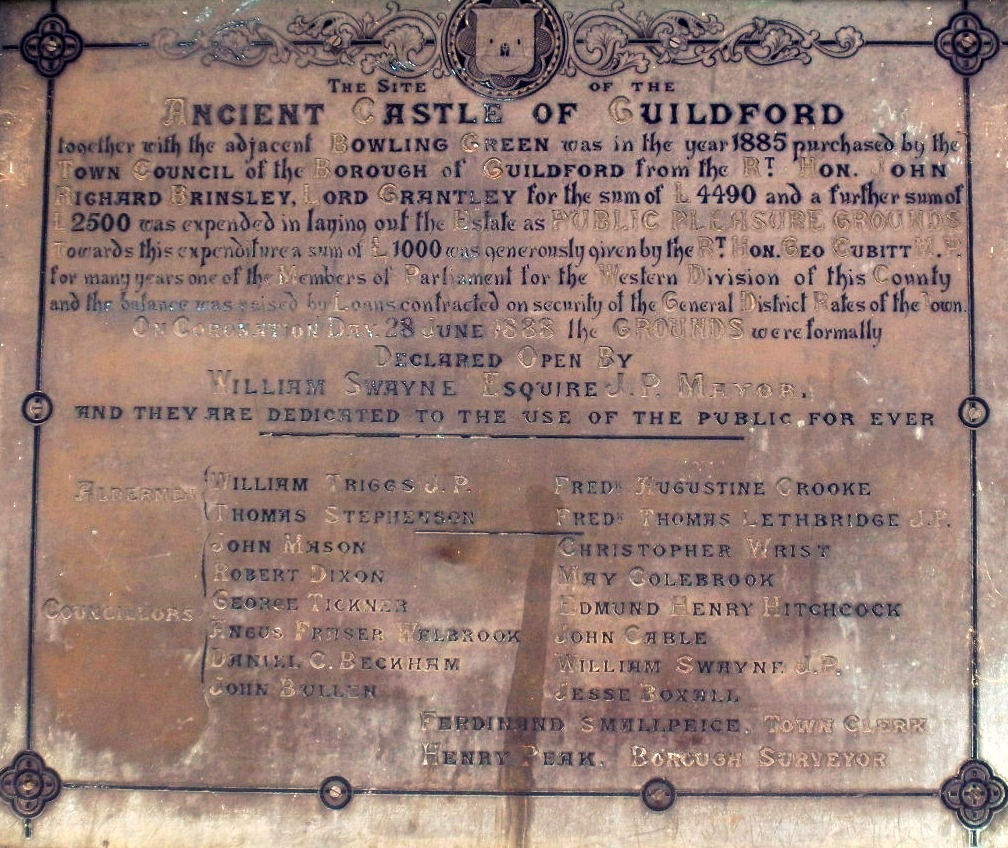 THE SITE OF THE
ANCIENT CASTLE OF GUILDFORD
together with the adjacent BOWLING GREEN was in the year 1885 purchased by the
TOWN COUNCIL of the BOROUGH of GUILDFORD from the RT HON. JOHN
RICHARD BRINSLEY, LORD GRANTLEY for the sum of £4490 and a further sum of
£2500 was expended in laying out the Estate as PUBLIC PLEASURE GROUNDS
Towards this expenditure a sum of £1000 was generously given by the RT HON. GEO CUBITT M.P.
for many years one of the Members of Parliament for the Western Division of this County
and the balance was raised by Loans contracted on security of the General District Rates of the Town.
ON CORONATION DAY. 28 JUNE 1888 the GROUNDS were formally
DECLARED OPEN BY
WILLIAM SWAYNE ESQUIRE J.P. MAYOR,
AND THEY ARE DEDICATED TO THE USE OF THE PUBLIC FOR EVER
ALDERMEN WILLIAM TRIGGS J.P. FREDK AUGUSTINE CROOKE
THOMAS STEPHENSON FREDK THOMAS LETHBRIDGE J.P.
JOHN MASON CHRISTOPHER WRIST
ROBERT DIXON MAY COLEBROOK
COUNCILLORS GEORGE TICKNER EDMUND HENRY HITCHCOCK
ANGUS FRASER WALBROOK JOHN CABLE
DANIEL C. BECKHAM WILLIAM SWAYNE J.P.
JOHN BULLEN JESSE BOXALL
FERDINAND SMALLPEICE, TOWN CLERK
HENRY PEAK, BOROUGH SURVEYOR